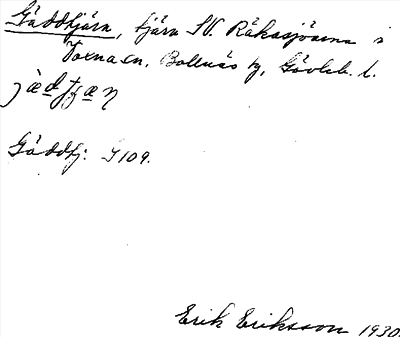 Gäddtjärn, tjärn SV. Råkasjöarna i
Voxna sn, Bollnäs tg, Gävleb. l.
Gäddtj: J 109.
Erik Eriksson 1930.